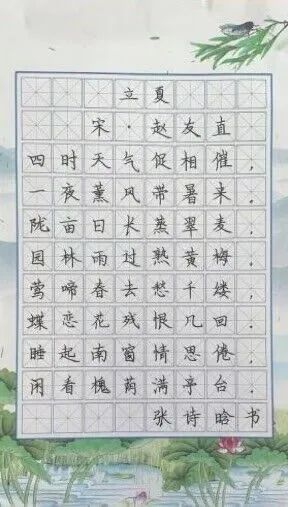 立夏
宋·赵友直
四时天气促相催，
一夜薰风带暑来．
陇亩日长蒸翠麦，
园林雨过熟黄梅．
莺啼春去愁千缕，
蝶恋花残恨几回．
睡起南窗情思倦，
闲看槐荫满亭台．
张诗晗书